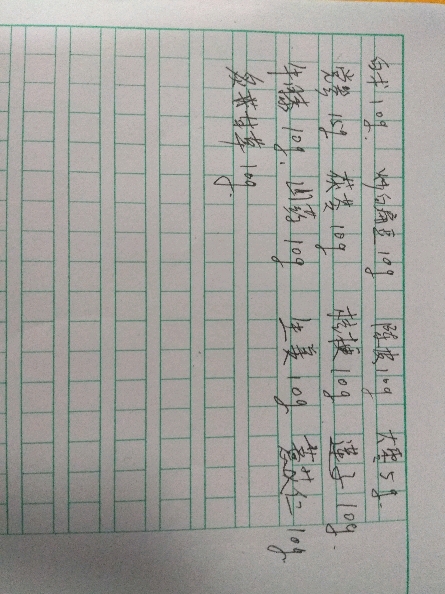 白术10g. 炒白扁豆10g 陈皮10g 大枣5g.
党参15g 茯苓10g 桔梗10g 莲子10g.
牛膝10g. 山药10g 生姜10g 薏苡仁10g.
甘草10g.